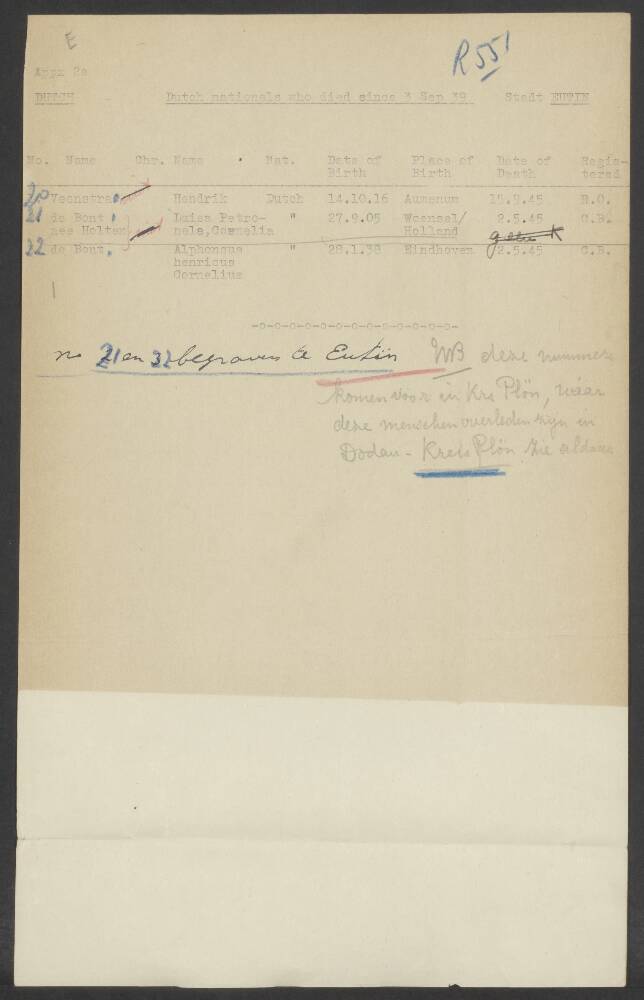 E
R 551
Appx 2a
DUTCH Dutch nationals who died since 3 Sep 39 Stadt EUTIN
No. Name Chr. Name Nat. Date of Birth Place of Birth Date of Death Registered
20 Veenstra Hendrik Dutch 14.10.16 .9.45 R.O.
21 de Bont nee Holten Luisa Petronela, Cornelia " 27.9.05 Woensel/ Holland 2.5.45 C.B.
22 de Bont. Alphonsus henricus Cornelius " 28.1.38 Eindhoven 2.5.45 C.B.
-o-o-o-o-o-o-o-o-o-o-o-o-o-
no 21 en 22 begraven te Eutin
NB deze nummers
komen voor in Krs Plön, waar
deze menschen overleden zijn in
Dodau - Kreis Plön zie aldaar